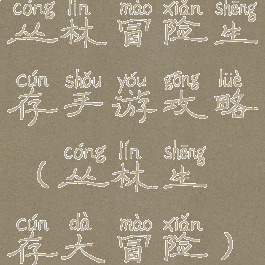 cóng lín mào xiǎn shēng
丛林冒險生
cún shǒu yóu gōng lüè
存手游攻略
cóng lín shēng
(丛林生
cún dà mào xiǎn
存大冒險)